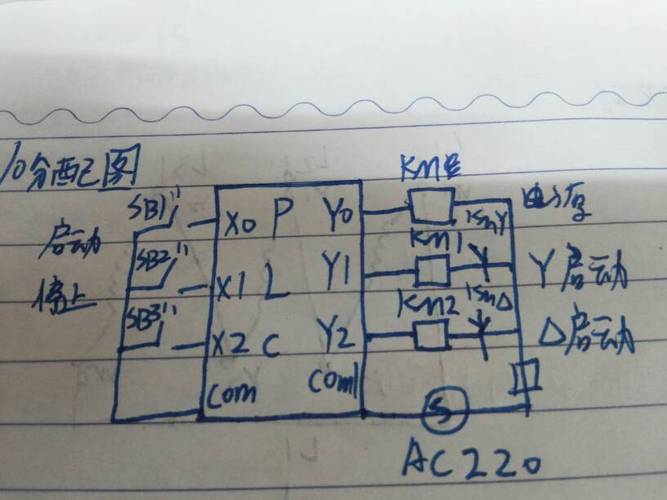 I/O分配图
启动
停止
SB1
SB2
SB3
X0
X1
X2
COM
P
L
C
Y0
Y1
Y2
COM1
KM1
KM2
KMY
KM△
电源
Y启动
△启动
S
AC220